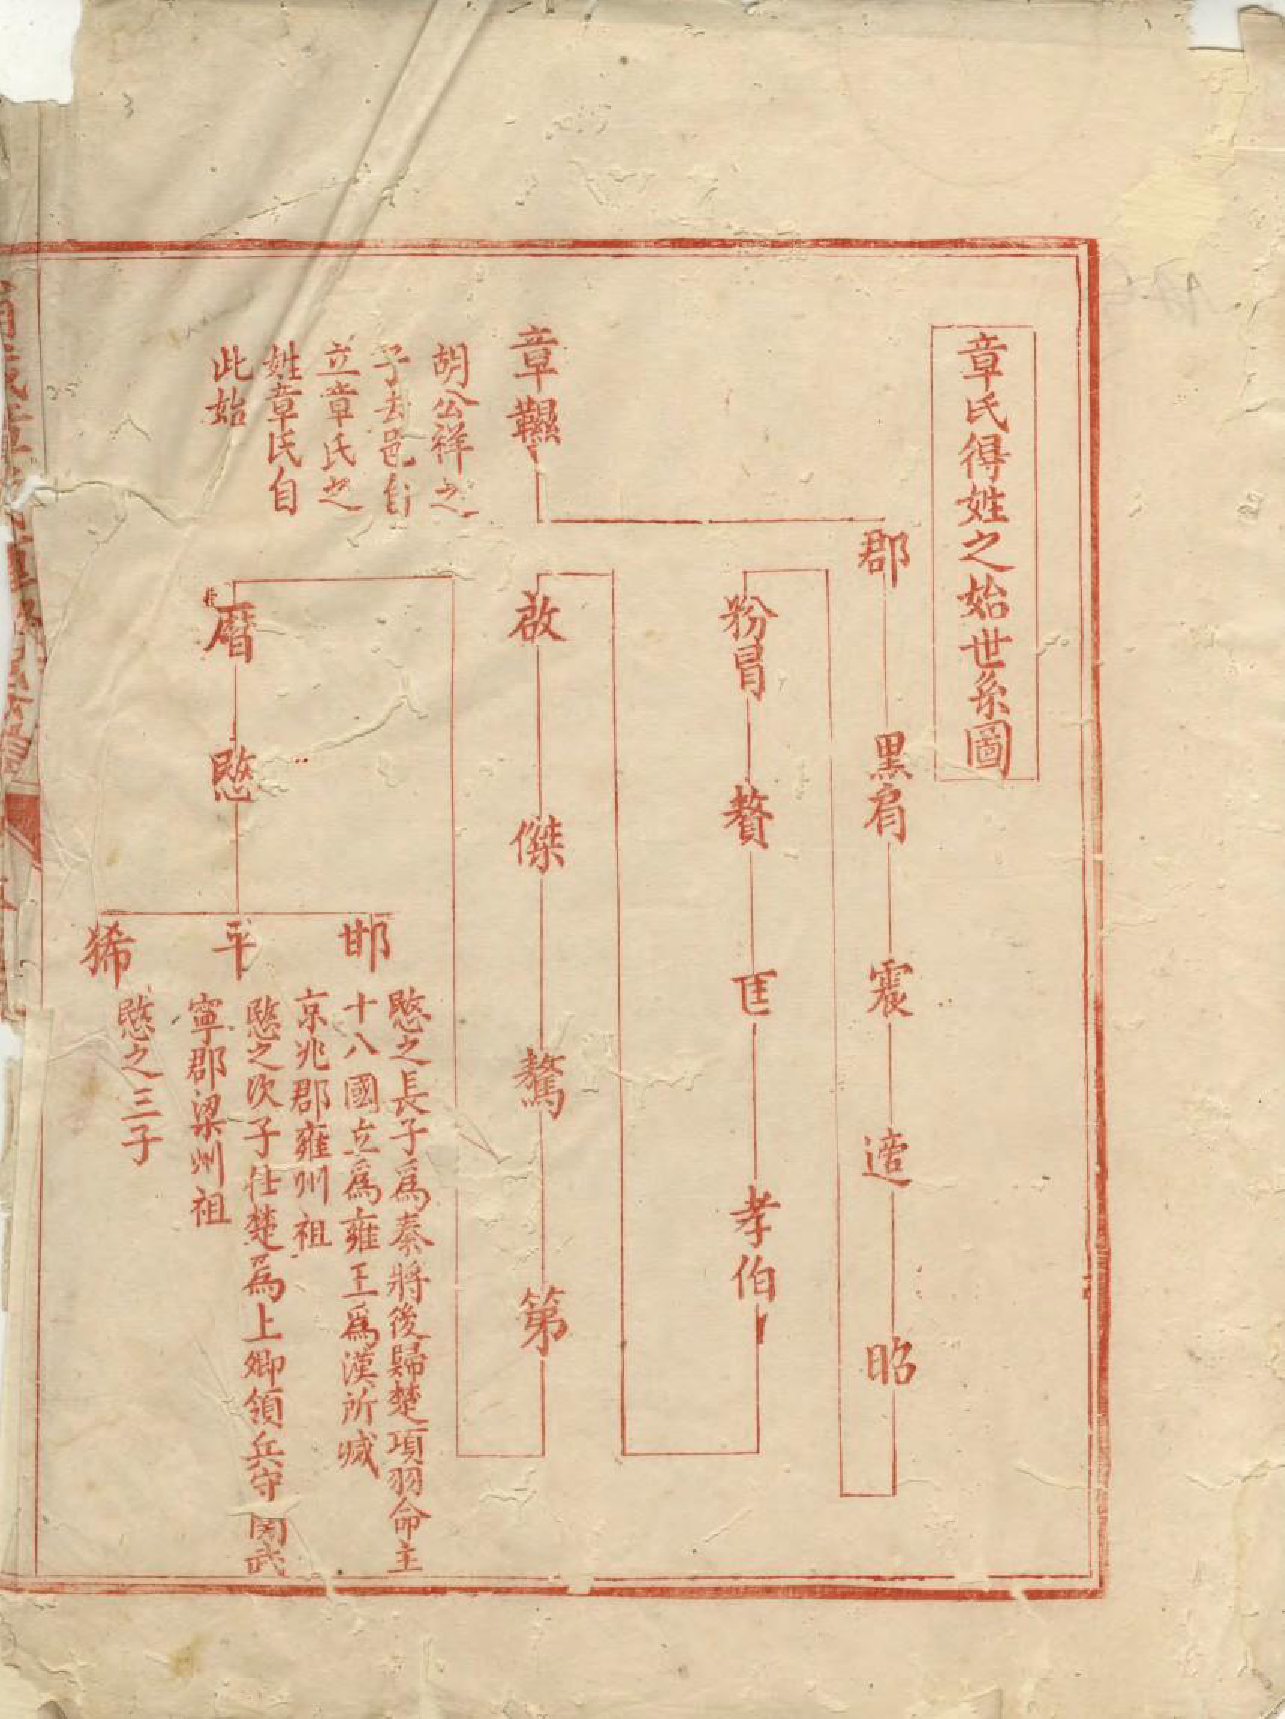 章氏得姓之始世系圖
章韅
胡公祥之
子去邑自
立章氏之
姓章氏自
此始
郡
黑肩
震
昭
粉冒
贅
匡
孝伯
啟
傑
驁
第
暦
愍
邯
愍之長子爲秦將後歸楚項羽命主
十八國立爲雍王爲漢所滅
京兆郡雍州祖
平
愍之次子仕楚爲上卿領兵守関武
寧郡梁州祖
狶
愍之三子